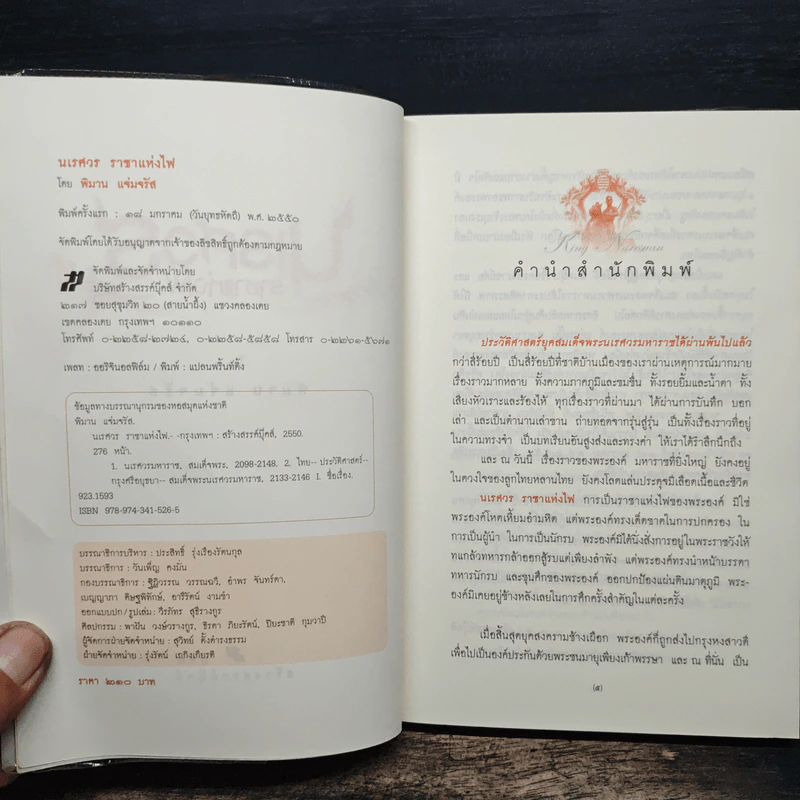 นเรศวร ราชาแห่งไฟ
โดย พิมาน แจ่มจรัส
พิมพ์ครั้งแรก : ๑๘ มกราคม (วันยุทธหัตถี) พ.ศ. ๒๕๕๐
จัดพิมพ์โดยได้รับอนุญาตจากเจ้าของลิขสิทธิ์ถูกต้องตามกฎหมาย
จัดพิมพ์และจัดจำหน่ายโดย
บริษัทสร้างสรรค์บุ๊คส์ จำกัด
๒๑๗ ซอยสุขุมวิท ๒๐ (สายน้ำผึ้ง) แขวงคลองเตย
เขตคลองเตย กรุงเทพฯ ๑๐๑๑๐
โทรศัพท์ ๐-๒๒๕๘-๒๓๒๔, ๐-๒๒๕๘-๕๘๕๘ โทรสาร ๐-๒๒๖๑-๕๖๗๑
เพลท : ออริจินอลฟิล์ม / พิมพ์ : แปลนพริ้นท์ติ้ง
ข้อมูลทางบรรณานุกรมของหอสมุดแห่งชาติ
พิมาน แจ่มจรัส.
นเรศวร ราชาแห่งไฟ.- -กรุงเทพฯ : สร้างสรรค์บุ๊คส์, 2550.
276 หน้า.
1. นเรศวรมหาราช, สมเด็จพระ, 2098-2148. 2. ไทย-- ประวัติศาสตร์--
กรุงศรีอยุธยา-- สมเด็จพระนเรศวรมหาราช, 2133-2146 I. ชื่อเรื่อง.
923.1593
ISBN 978-974-341-526-5
บรรณาธิการบริหาร : ประสิทธิ์ รุ่งเรืองรัตนกุล
บรรณาธิการ : วันเพ็ญ คงมั่น
กองบรรณาธิการ : ฐิฏิวรรณ วรรณฉวี, อำพร จันทร์ดา,
เบญญาภา คิษฐพิทักษ์, อารีรัตน์ งามขำ
ออกแบบปก / รูปเล่ม : วีรภัทร สุธีรางกูร
ศิลปกรรม : พาฝัน วงษ์วรางกูร, ธิรดา ภิยะรัตน์, ปิยะชาติ กุมวาปี
ผู้จัดการฝ่ายจัดจำหน่าย : สุวิทย์ ตั้งดำรงธรรม
ฝ่ายจัดจำหน่าย : รุ่งรัตน์ เถกิงเกียรติ
ราคา ๒๑๐ บาท
King Naresuan
คำนำสำนักพิมพ์
ประวัติศาสตร์ยุคสมเด็จพระนเรศวรมหาราชได้ผ่านพ้นไปแล้ว
กว่าสี่ร้อยปี เป็นสี่ร้อยปีที่ชาติบ้านเมืองของเราผ่านเหตุการณ์มากมาย
เรื่องราวมากหลาย ทั้งความภาคภูมิและขมขื่น ทั้งรอยยิ้มและน้ำตา ทั้ง
เสียงหัวเราะและร้องไห้ ทุกเรื่องราวที่ผ่านมา ได้ผ่านการบันทึก บอก
เล่า และเป็นตำนานเล่าขาน ถ่ายทอดจากรุ่นสู่รุ่น เป็นทั้งเรื่องราวที่อยู่
ในความทรงจำ เป็นบทเรียนอันสูงส่งและทรงค่า ให้เราได้รำลึกนึกถึง
และ ณ วันนี้ เรื่องราวของพระองค์ มหาราชที่ยิ่งใหญ่ ยังคงอยู่
ในดวงใจของลูกไทยหลานไทย ยังคงโลดแล่นประดุจมีเลือดเนื้อและชีวิต
นเรศวร ราชาแห่งไฟ การเป็นราชาแห่งไฟของพระองค์ มิใช่
พระองค์โหดเหี้ยมอำมหิต แต่พระองค์ทรงเด็ดขาดในการปกครอง ใน
การเป็นผู้นำ ในการเป็นนักรบ พระองค์มิได้นิ่งสั่งการอยู่ในพระราชวังให้
ทแกล้วทหารกล้าออกสู้รบแต่เพียงลำพัง แต่พระองค์ทรงนำหน้าบรรดา
ทหารนักรบ และขุนศึกของพระองค์ ออกปกป้องแผ่นดินมาตุภูมิ พระ-
องค์มิเคยอยู่ข้างหลังเลยในการศึกครั้งสำคัญในแต่ละครั้ง
เมื่อสิ้นสุดยุคสงครามช้างเผือก พระองค์ที่ถูกส่งไปกรุงหงสาวดี
เพื่อไปเป็นองค์ประกันด้วยพระชนมายุเพียงเก้าพรรษา และ ณ ที่นั่น เป็น
(๕)